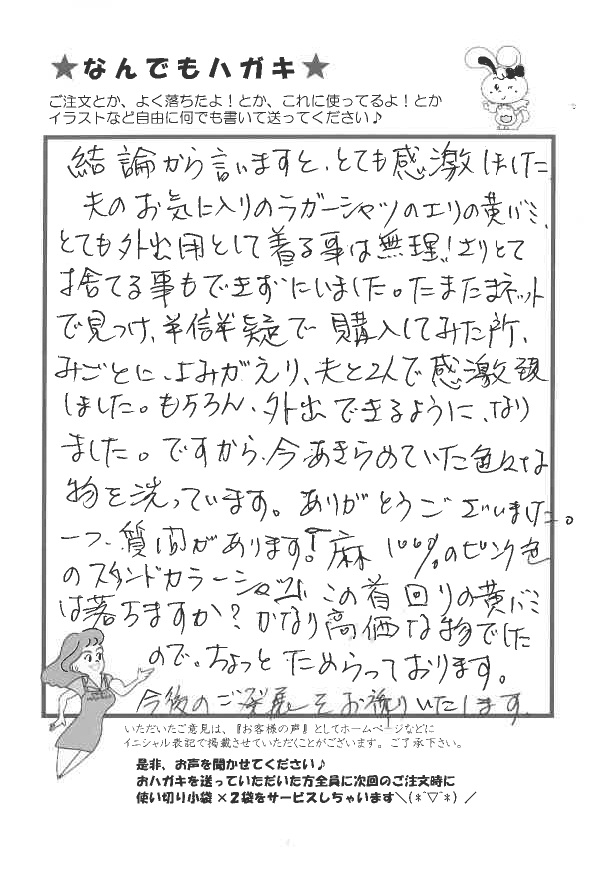 ★なんでもハガキ★
ご注文とか、よく落ちたよ！とか、これに使ってるよ！とか
イラストなど自由に何でも書いて送ってください♪
結論から言いますと、とても感激しました
夫のお気に入りのラガーシャツのエリの黄バミ、
とても外出用として着る事は無理!!さりとて
捨てる事もできずにいました。たまたまネット
で見つけ、半信半疑で購入してみた所、
みごとに、よみがえり、夫と2人で感激
しました。もちろん、外出できるように、なり
ました。ですから、今あきらめていた色々な
物を洗っています。ありがとうございました。
一つ、質問があります！麻100%のピンク色
のスタンドカラーシャツ この首回りの黄バミ
は落ちますか？かなり高価な物でした
ので。ちょっとためらっております。
今後のご発展をお祈りいたします。
いただいたご意見は、『お客様の声』としてホームページなどに
イニシャル表記で掲載させていただくことがございます。ご了承下さい。
是非、お声を聞かせてください♪
おハガキを送っていただいた方全員に次回のご注文時に
使い切り小袋×2袋をサービスしちゃいます＼(*^▽^*)／